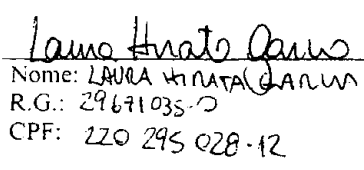 Laura Hirata
Nome: LAURA HIRATA
R.G.: 29671035-0
CPF: 220 295 028-12